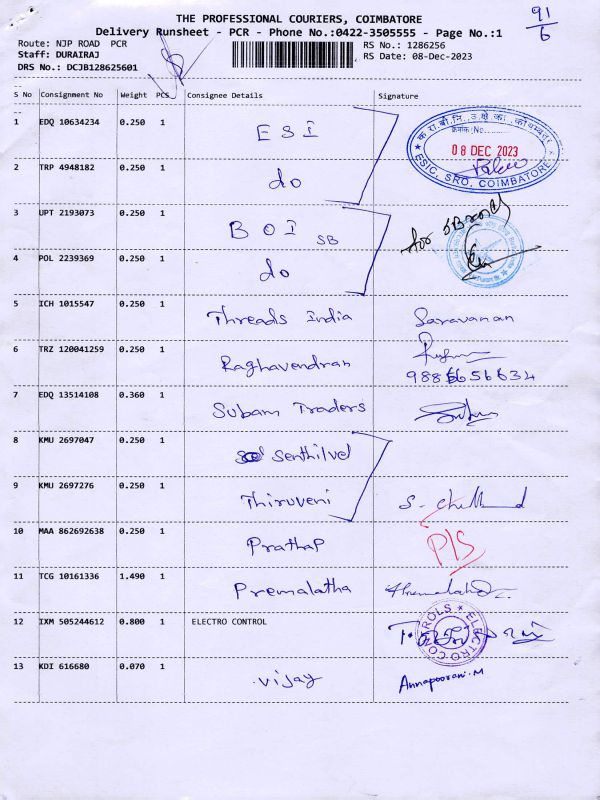 THE PROFESSIONAL COURIERS, COIMBATORE
Delivery Runsheet - PCR - Phone No.:0422-3505555 - Page No.:1
91
6
Route: NJP ROAD PCR
RS No.: 1286256
Staff: DURAIRAJ
RS Date: 08-Dec-2023
DRS No.: DCJB128625601
S No Consignment No Weight PCS Consignee Details Signature
1 EDQ 10634234 0.250 1 ESI
क.रा.बी.नि., उ.क्षे.का., कोयम्बत्तूर
क्रमांक/No.
08 DEC 2023
ESIC, SRO, COIMBATORE
2 TRP 4948182 0.250 1 do
3 UPT 2193073 0.250 1 BOI SB
for SB road
4 POL 2239369 0.250 1 do
5 ICH 1015547 0.250 1 Threads India Saravanan
6 TRZ 120041259 0.250 1 Raghavendran
7 EDQ 13514108 0.360 1 Subam Traders
8 KMU 2697047 0.250 1 Senthilvel
9 KMU 2697276 0.250 1 Thiruveni
10 MAA 862692638 0.250 1 Prathap P/S
11 TCG 10161336 1.490 1 Premalatha Premalatha
12 IXM 505244612 0.800 1 ELECTRO CONTROL
ELECTRO CONTROLS
13 KDI 616680 0.070 1 Vijay Annapoorani.M